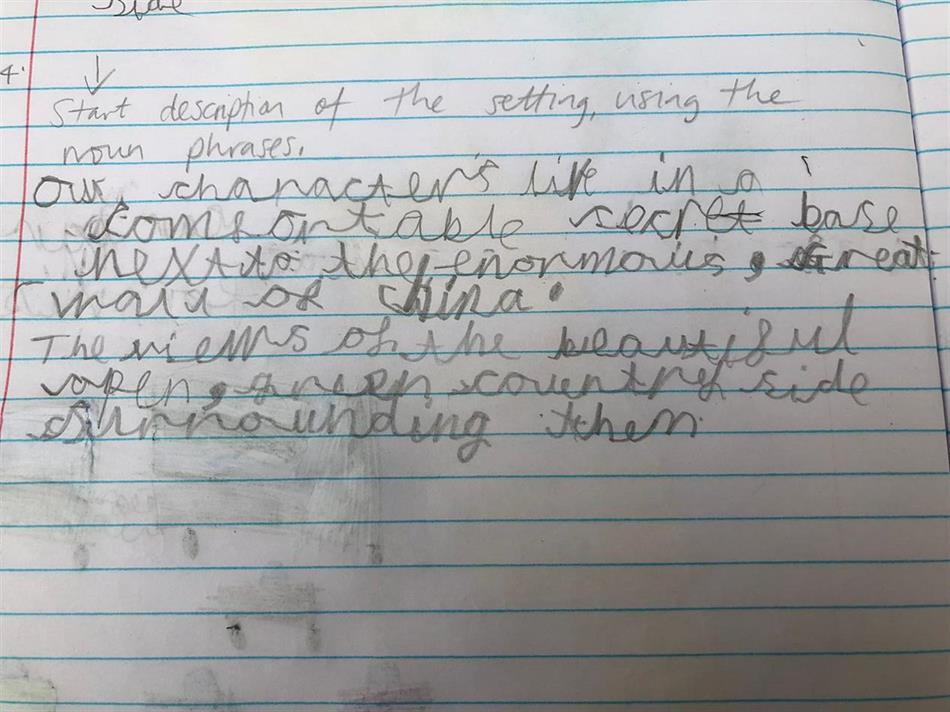 side
4.
Start description of the setting, using the
noun phrases.
Our character's live in a
comfortable secret base
next to the enormous, Great
wall of china.
The views of the beautiful
open, green countryside
surrounding them